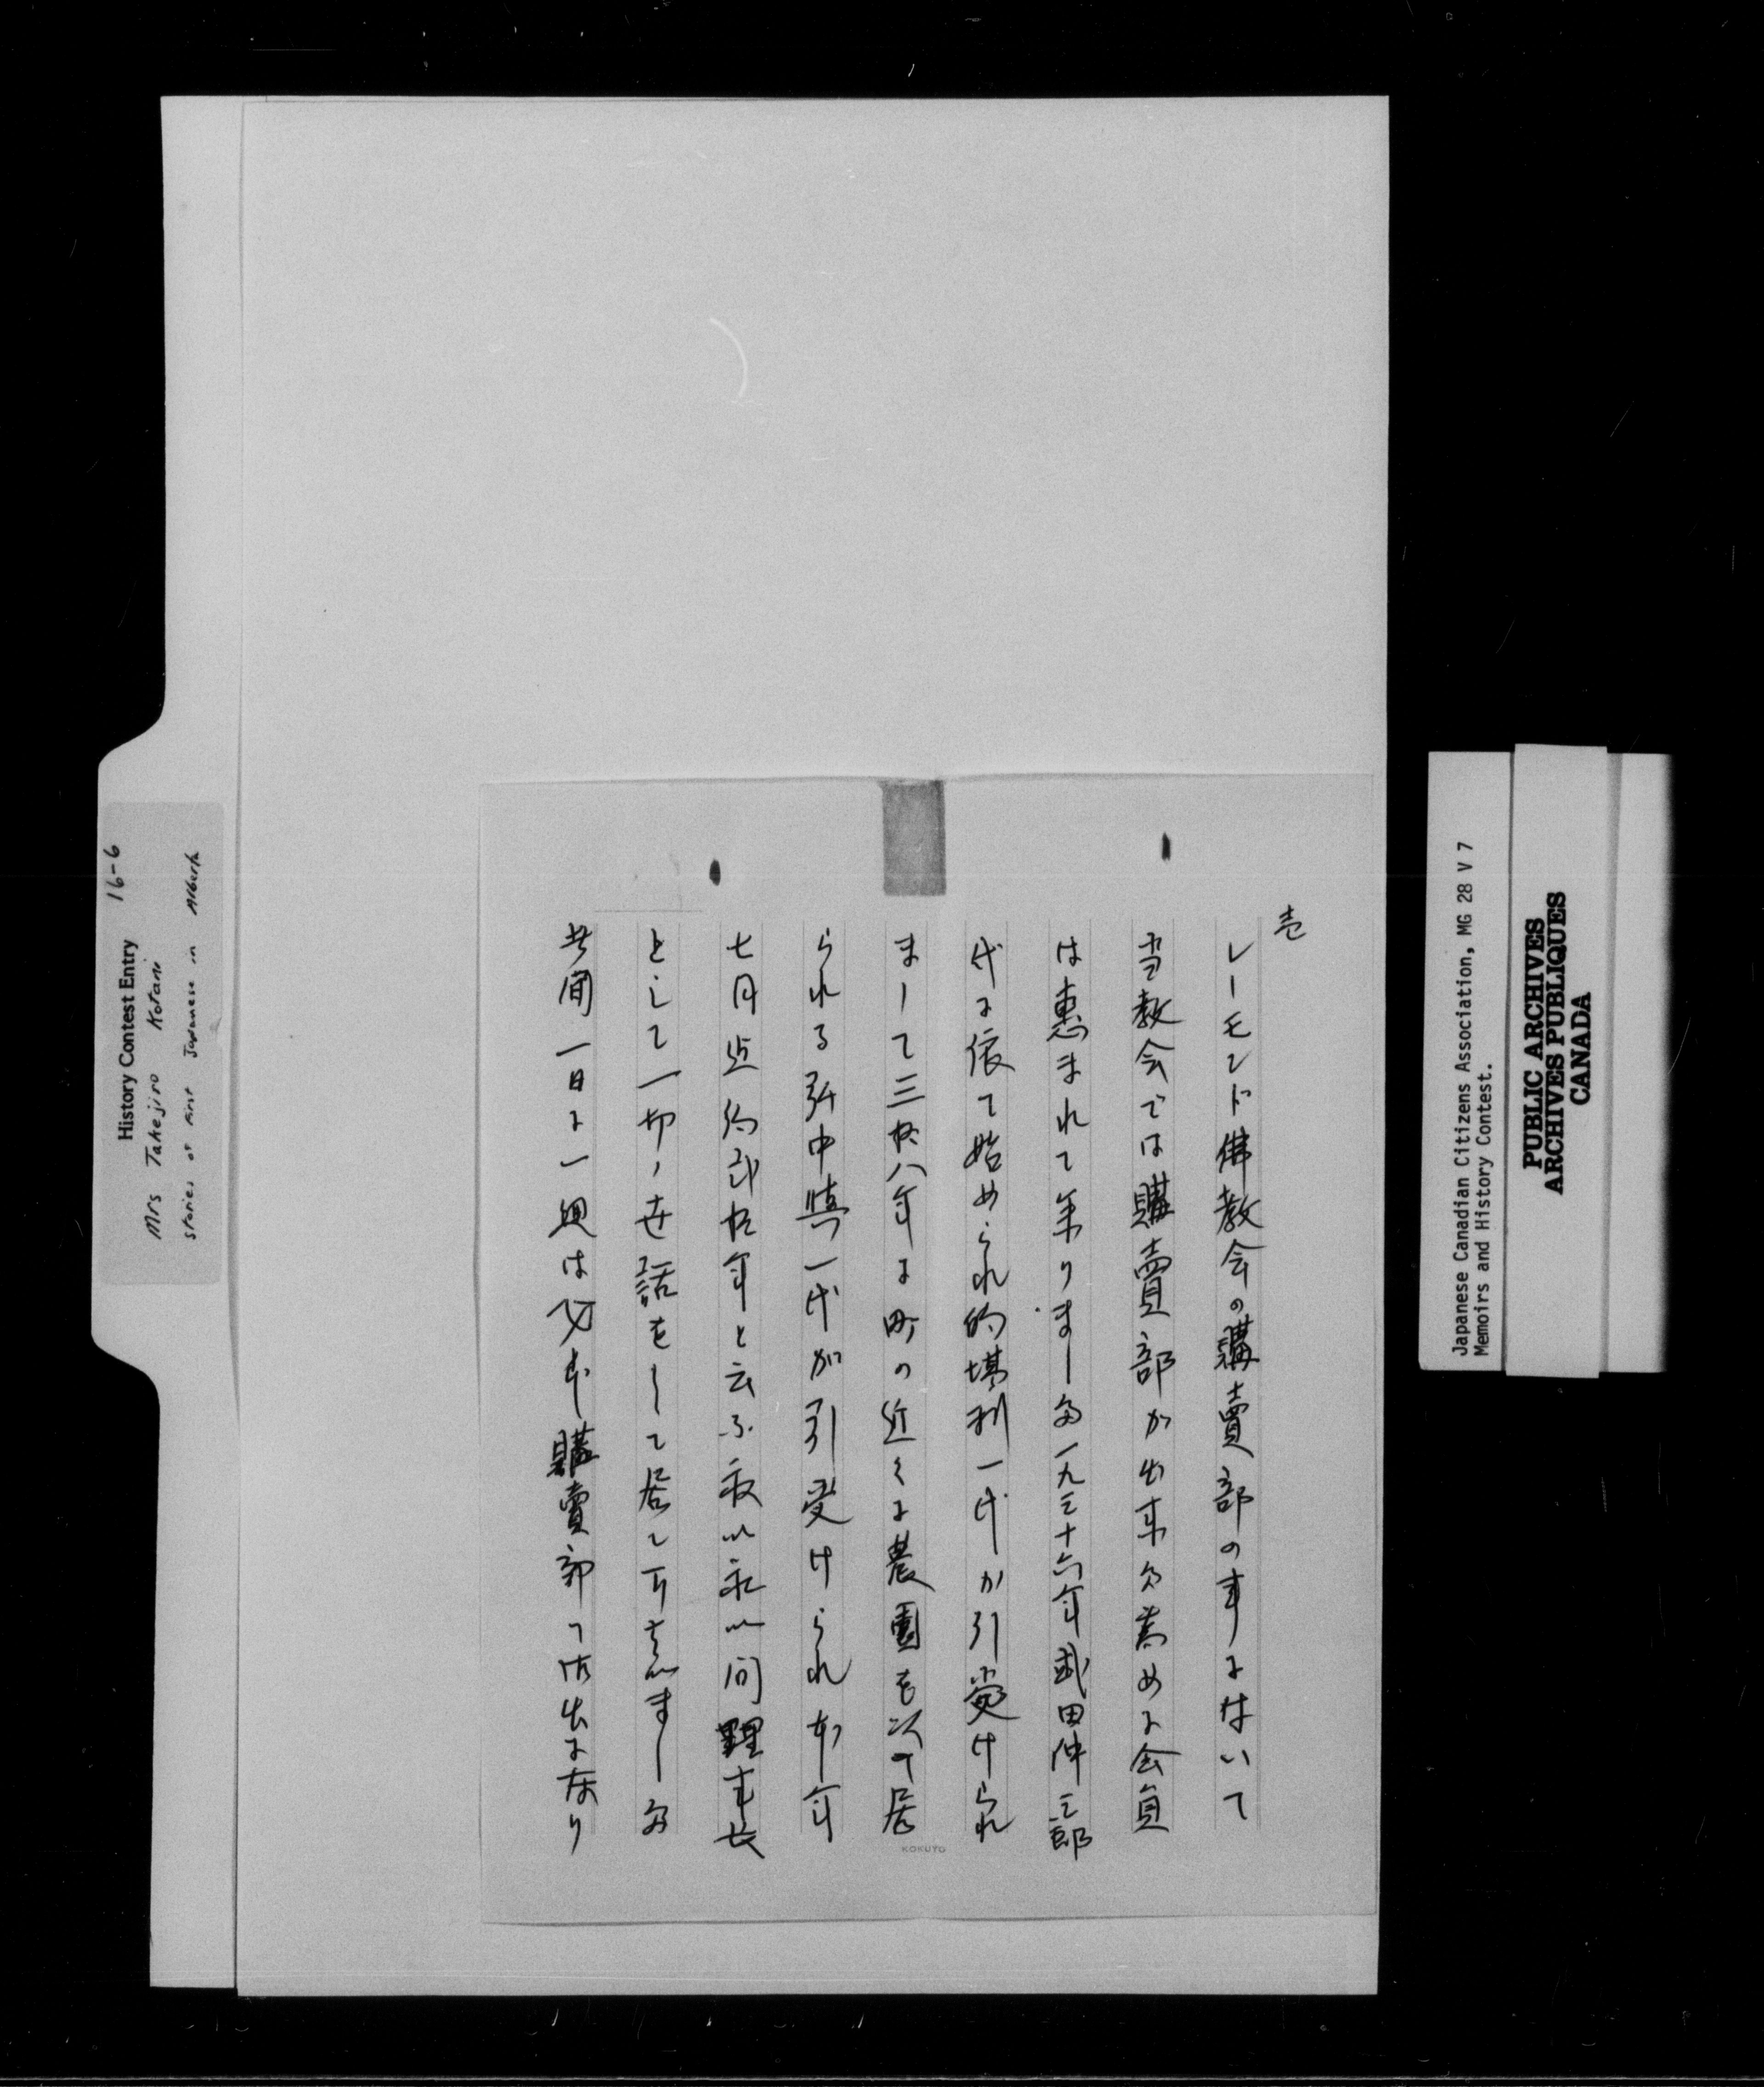 History Contest Entry 16-6
Mrs Takejiro Kotani
stories of first Japanese in Alberta
壱
レーモンド佛教会の購賣部の事について
当教会では購賣部が出来た為めに会員
は恵まれて来りました一九三十六年武田伸三郎
氏に依て始められ的場利一氏が引受けられ
まして三拾八年に町の近くに農園を以て居
られる弘中慎一氏が引受けられ本年
七月迄約弐拾年と云ふ永い永い间理事長
として一切ノ世話をして居て下さいました
其间一日に一回は必ず購賣部へ御出になり
KOKUYO
Japanese Canadian Citizens Association, MG 28 V 7
Memoirs and History Contest.
PUBLIC ARCHIVES
ARCHIVES PUBLIQUES
CANADA